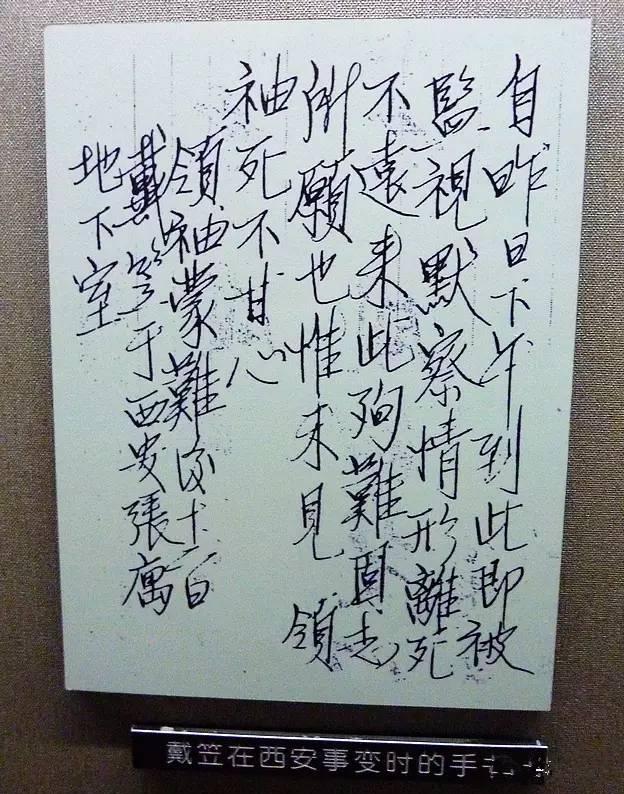 自昨日下午到此即被
監視默察情形離死
不遠来此殉難固志
所願也惟未見領
袖死不甘心
領袖蒙難後十二日
戴笠于西安張寓
地下室
戴笠在西安事变时的手